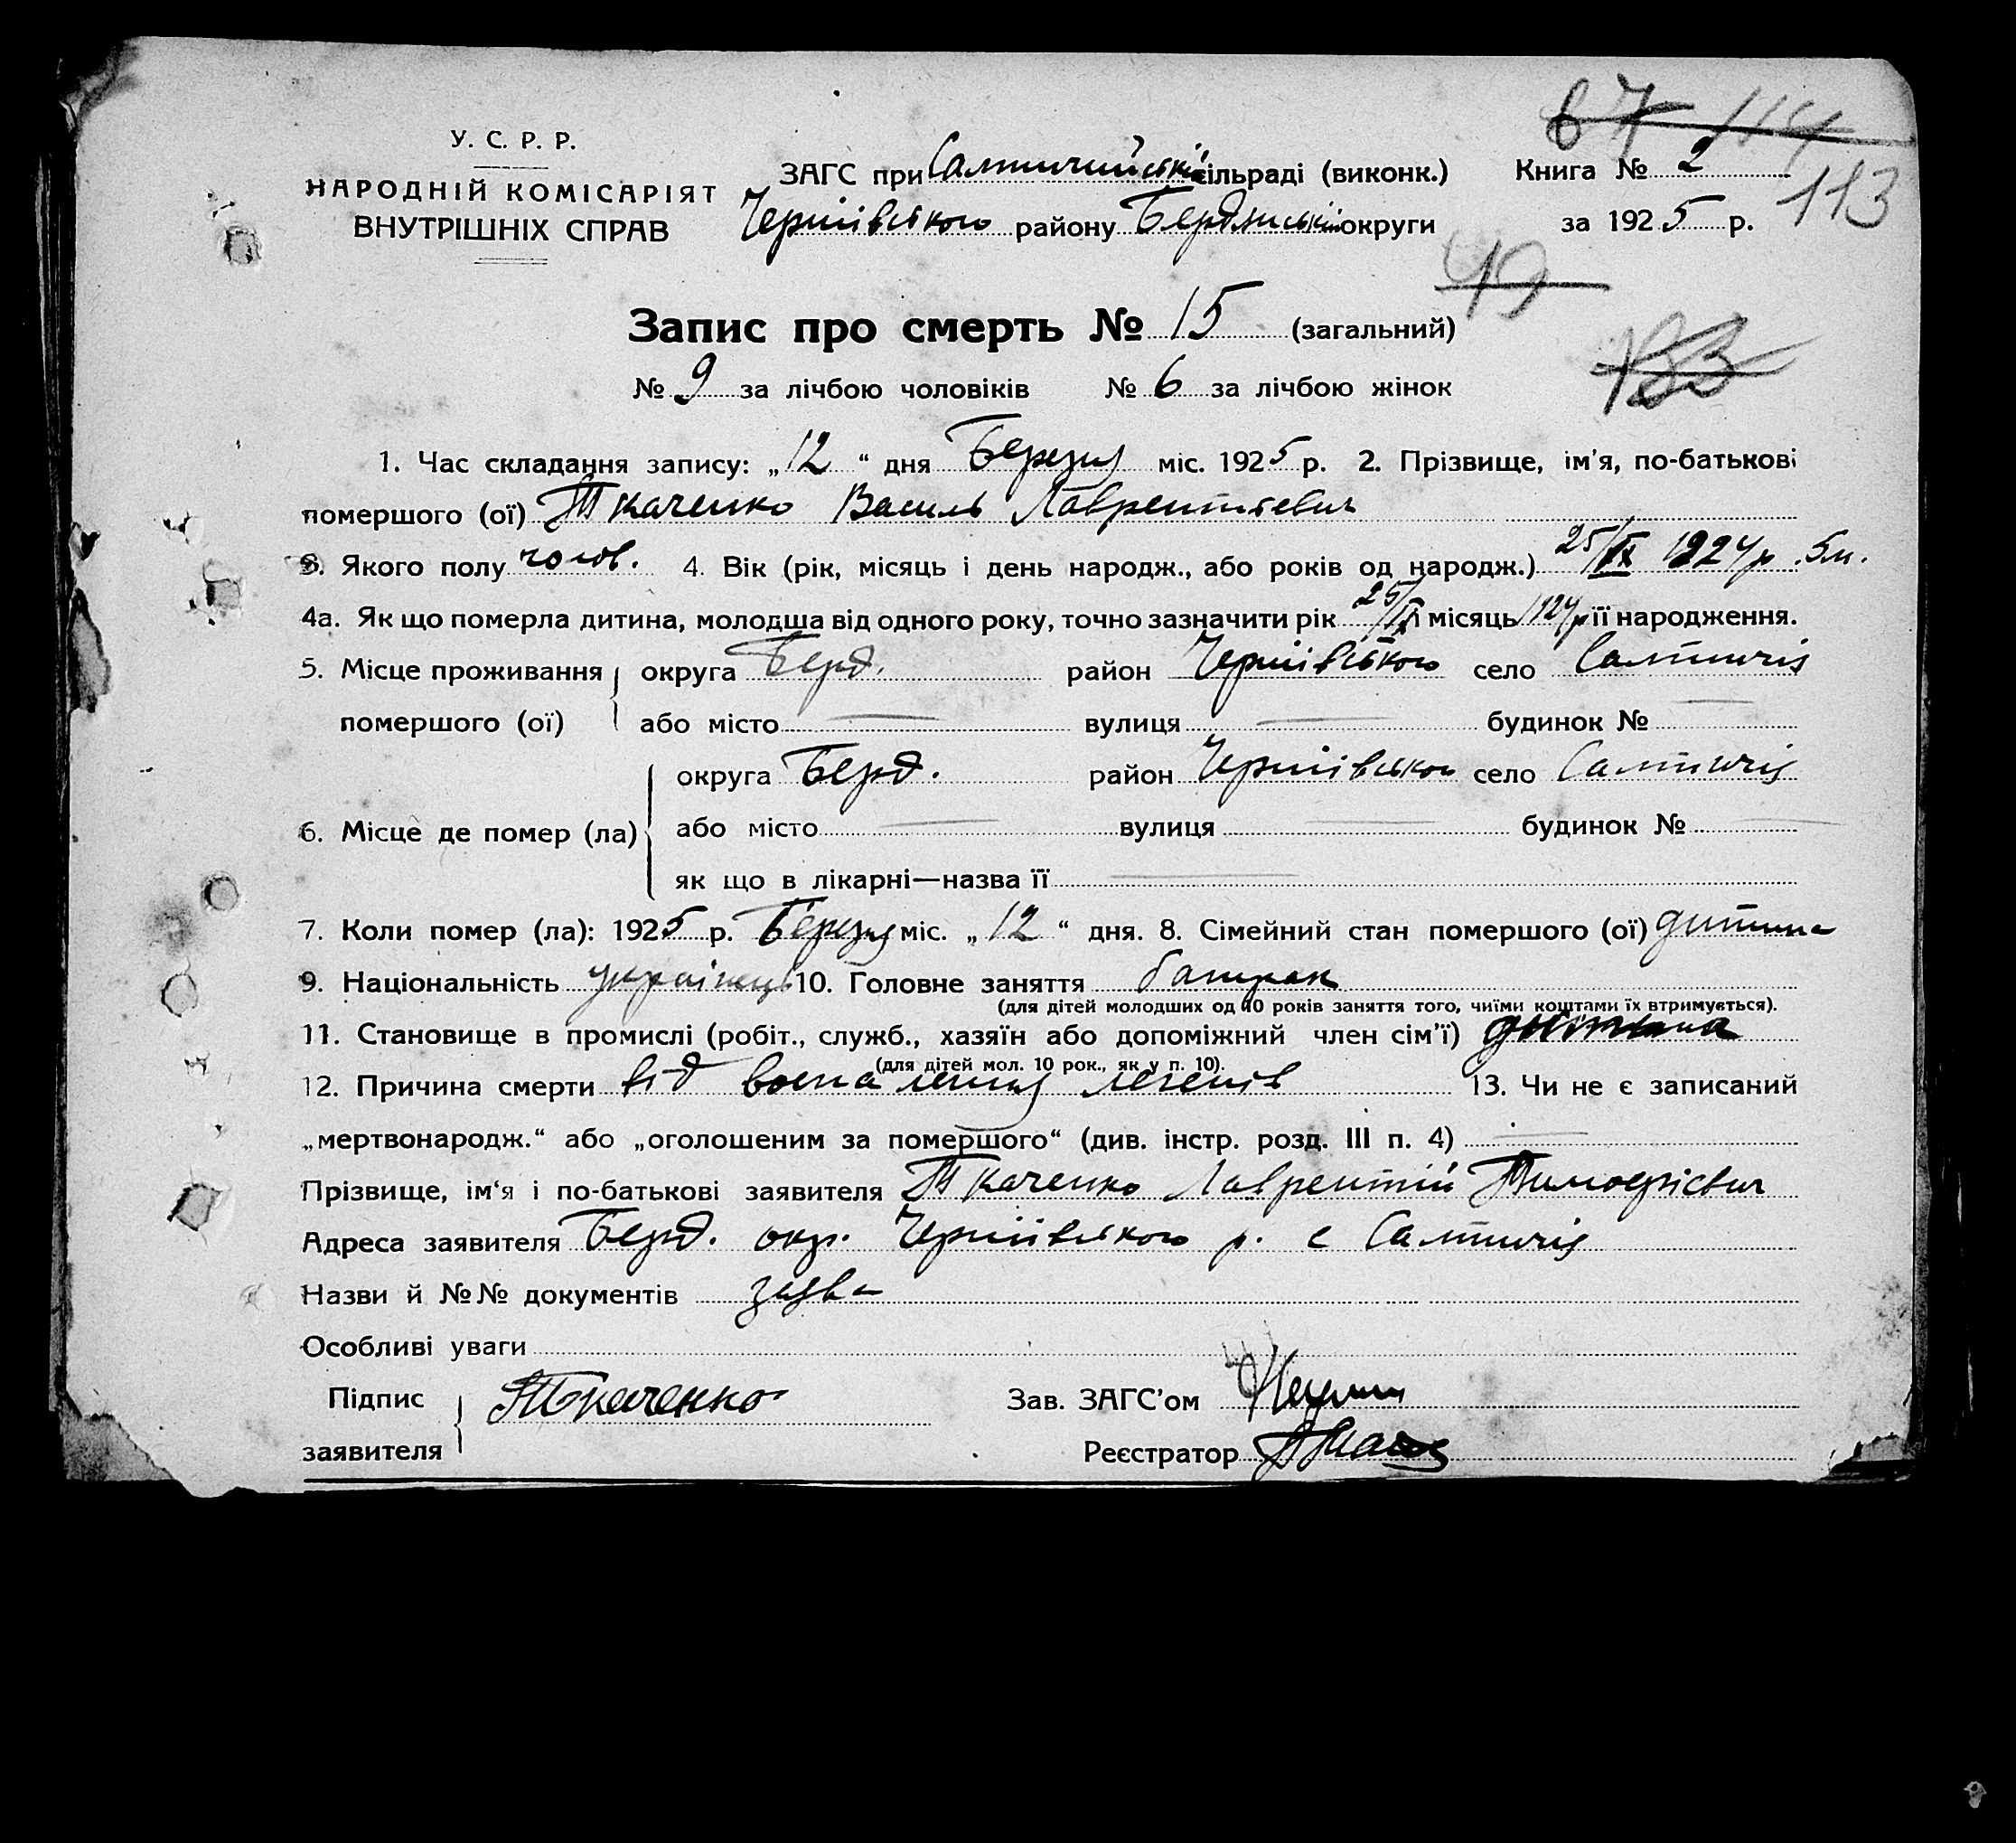 67 114
У. С. Р. Р.
НАРОДНІЙ КОМІСАРІЯТ
ВНУТРІШНІХ СПРАВ
ЗАГС при Салтичийській сільраді (виконк.)
Чернівського району Бердянської округи
Книга № 2
за 1925 р.
113
49
Запис про смерть № 15 (загальний)
133
№ 9 за лічбою чоловіків № 6 за лічбою жінок
1. Час складання запису: „12“ дня Березня міс. 1925 р. 2. Прізвище, ім'я, по-батькові
помершого (ої) Ткаченко Василь Лаврентієвич
3. Якого полу чолов. 4. Вік (рік, місяць і день народж., або років од народж.) 25/IX 1924 р. 5 м.
4а. Як що померла дитина, молодша від одного року, точно зазначити рік 25/IX місяць 1924 р її народження.
5. Місце проживання округа Берд. район Чернівського село Салтичія
помершого (ої) або місто — вулиця — будинок № —
6. Місце де помер (ла) округа Берд. район Чернівського село Салтичія
або місто — вулиця — будинок № —
як що в лікарні—назва її —
7. Коли помер (ла): 1925 р. Березня міс. „12“ дня. 8. Сімейний стан помершого (ої) дитина
9. Національність українець 10. Головне заняття батрак
(для дітей молодших од 10 років заняття того, чиїми коштами їх втримується).
11. Становище в промислі (робіт., служб., хазяїн або допоміжний член сім'ї) дитина
(для дітей мол. 10 рок., як у п. 10).
12. Причина смерти від воспаления легенів 13. Чи не є записаний
„мертвонародж.“ або „оголошеним за помершого“ (див. інстр. розд. III п. 4) —
Прізвище, ім'я і по-батькові заявителя Ткаченко Лаврентій Тимофієвич
Адреса заявителя Берд. окр. Чернівського р. с Салтичія
Назви й №№ документів заява
Особливі уваги
Підпис заявителя Ткаченко
Зав. ЗАГС'ом
Реєстратор